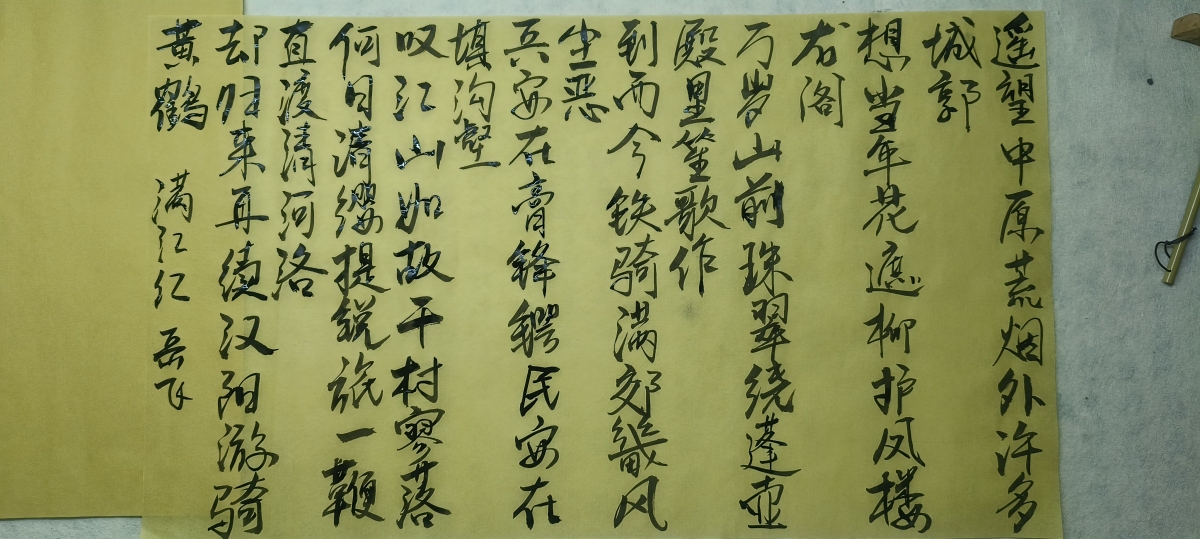 遥望中原荒烟外许多
城郭
想当年花遮柳护凤楼
龙阁
万岁山前珠翠绕蓬壶
殿里笙歌作
到而今铁骑满郊畿风
尘恶
兵安在膏锋锷民安在
填沟壑
叹江山如故千村寥落
何日清缨提锐旅一鞭
直渡清河洛
却归来再续汉阳游骑
黄鹤 满江红 岳飞